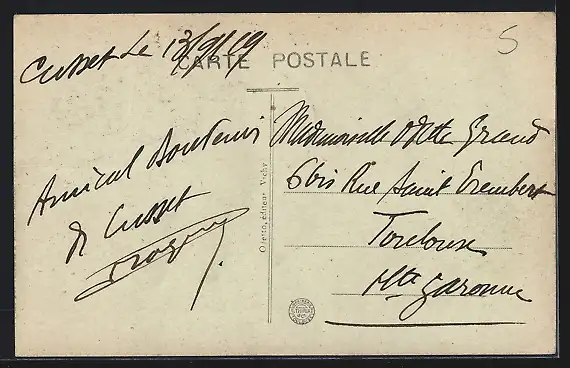 Cusset Le 13/9/19
5
CARTE POSTALE
Amical Souvenir
de Cusset
Mademoiselle Odette Grand
6 bis Rue Saint Erembert
Toulouse
Hte Garonne
Oletta, éditeur Vichy